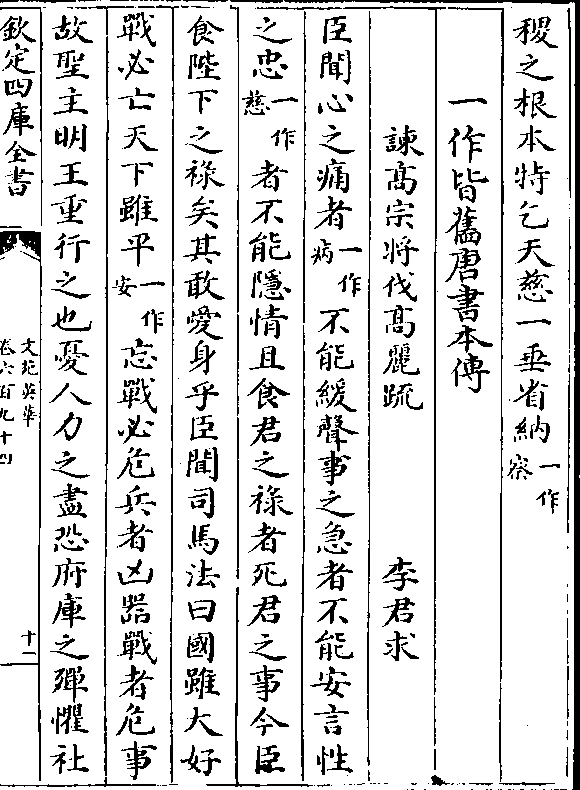 稷之根本特乞天慈一垂省納一作察
一作皆舊唐書本傳
諫高宗將伐高麗疏　李君求
臣聞心之痛者一作病不能緩聲事之急者不能安言性
之忠一作慈者不能隱情且食君之祿者死君之事今臣
食陛下之祿矣其敢愛身乎臣聞司馬法曰國雖大好
戰必亡天下雖平一作安忘戰必危兵者凶器戰者危事
故聖主明王重行之也憂人力之盡恐府庫之殫懼社
欽定四庫全書
文苑英華
卷六百九十四
十二